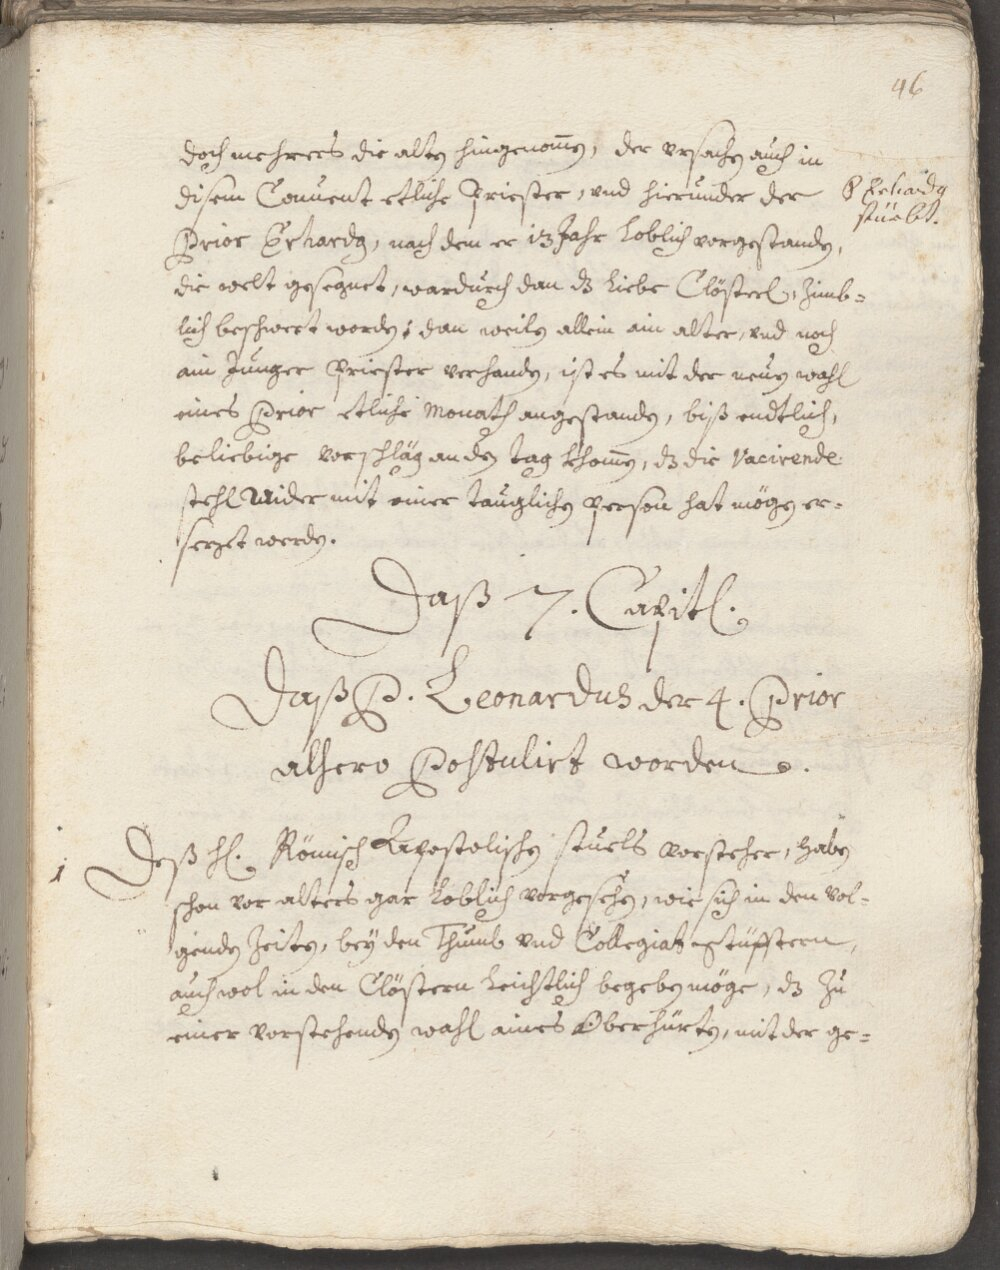 46
doch mehrers die alten hingenom̄en, der ursachen auch in
disem Conuent etliche Priester, vnd hierunder der
Prior Erhardus, nach dem er 13 Jahr loblich vorgestanden,
die welt gesegnet, wardurch dan dz liebe Clösterl, zimb=
lich beschwert worden; dan weilen allein ain alter, vnd noch
ain Junger Priester verhanden, ist es mit der neuen wahl
eines Prior etliche Monath angestanden, biß endtlich,
beliebige vorschläg an den tag khom̄en, dz die Vacirende
stehl wider mit einer tauglichen Person hat mögen er=
sezet werden.
P Erhardus
stürbt.
Daß 7. Capitl.
Daß P. Leonardus der 4. Prior
alhero Postuliert worden.
1 Deß hl. Römisch Apostolischen stuels vorsteher, haben
schon vor alters gar loblich vorgesehen, wie sich in den vol=
genden Zeiten, bey den Thumb vnd Collegiat Stüfftern,
auch wol in den Clöstern leichtlich begeben möge, dz zu
einer vorstehenden wahl aines Oberhürten, mit der ge=